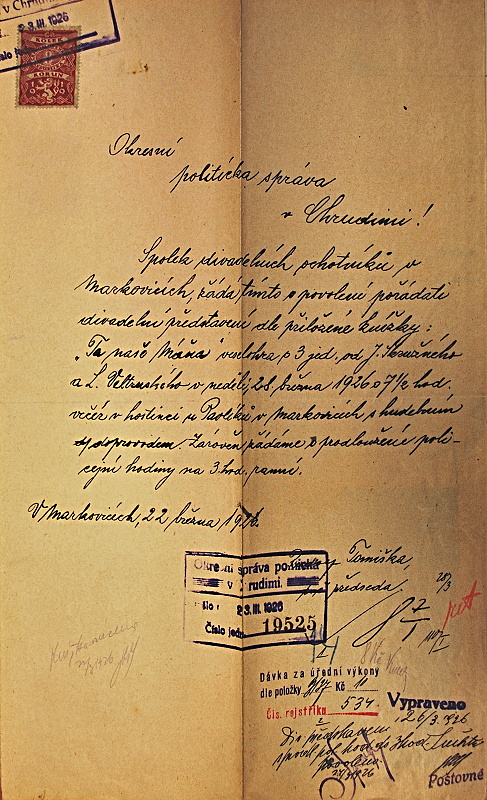 v Chrudimi
23.III.1926
KOLEK
KORUN
Okresní
politická správa
v Chrudimi!
Spolek divadelních ochotníků v
Markovicích, žádá tímto o povolení pořádati
divadelní představení dle přiložené knížky:
"Ta naše Máňa" veselohra o 3 jed. od J. Skružného
a L. Veltruského v neděli, 28. března 1926 o 7½ hod.
večer v hostinci u Pavlíků v Markovicích s hudebním
doprovodem. Zároveň žádáme o prodloužení poli-
cejní hodiny na 3. hod. ranní.
V Markovicích, 22. března, 1926.
Tomiška,
předseda.
28/3
Okresní správa politická
v Chrudimi.
23.III.1926
Číslo jedn. 19525
Dávka za úřední výkony
dle položky Kč 10
Čís. rejstříku 534
Vypraveno
26/3. 1926
Poštovné